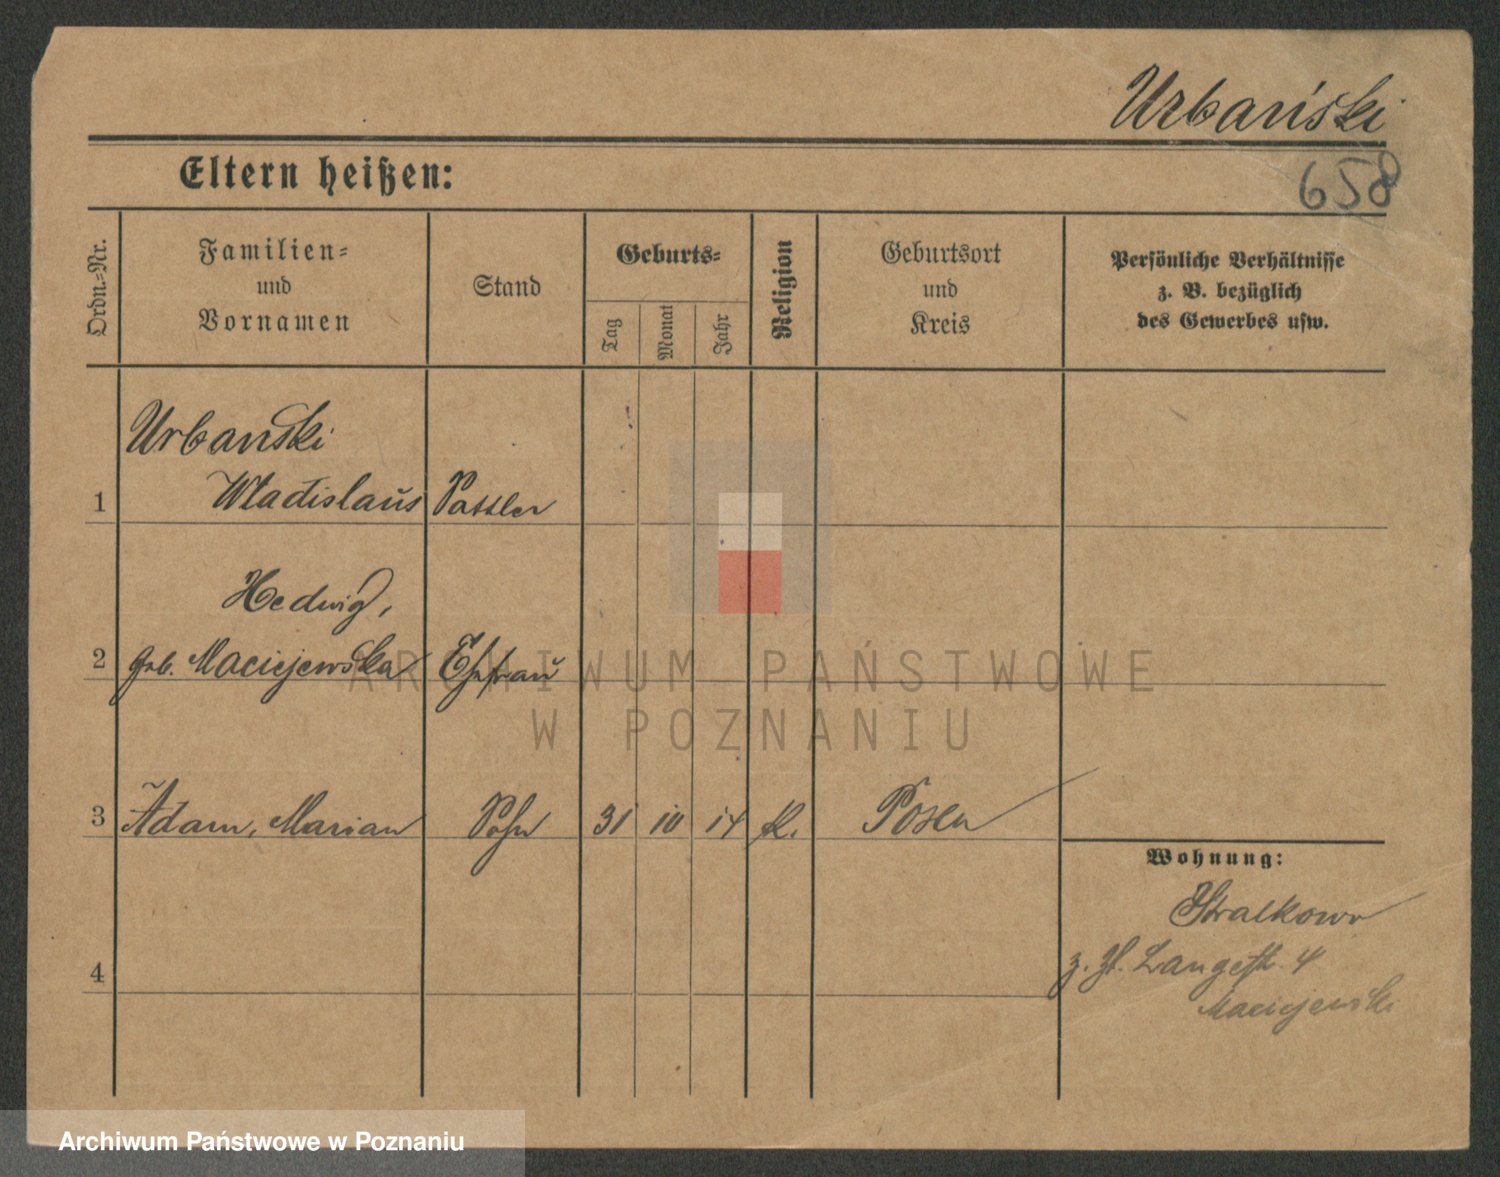 Urbański
658
Eltern heißen:
Ordn.=Nr.
Familien=
und
Vornamen
Stand
Geburts=
Tag
Monat
Jahr
Religion
Geburtsort
und
Kreis
Persönliche Verhältnisse
z. B. bezüglich
des Gewerbes usw.
Urbanski
1 Wladislaus Sattler
Hedwig,
2 geb. Maciejewska Ehefrau
3 Adam, Marian Sohn 31 10 14 k. Posen
Wohnung:
Stralkowo
4 z. Zt. Langestr. 4
Maciejewski
ARCHIWUM PAŃSTWOWE
W POZNANIU
Archiwum Państwowe w Poznaniu